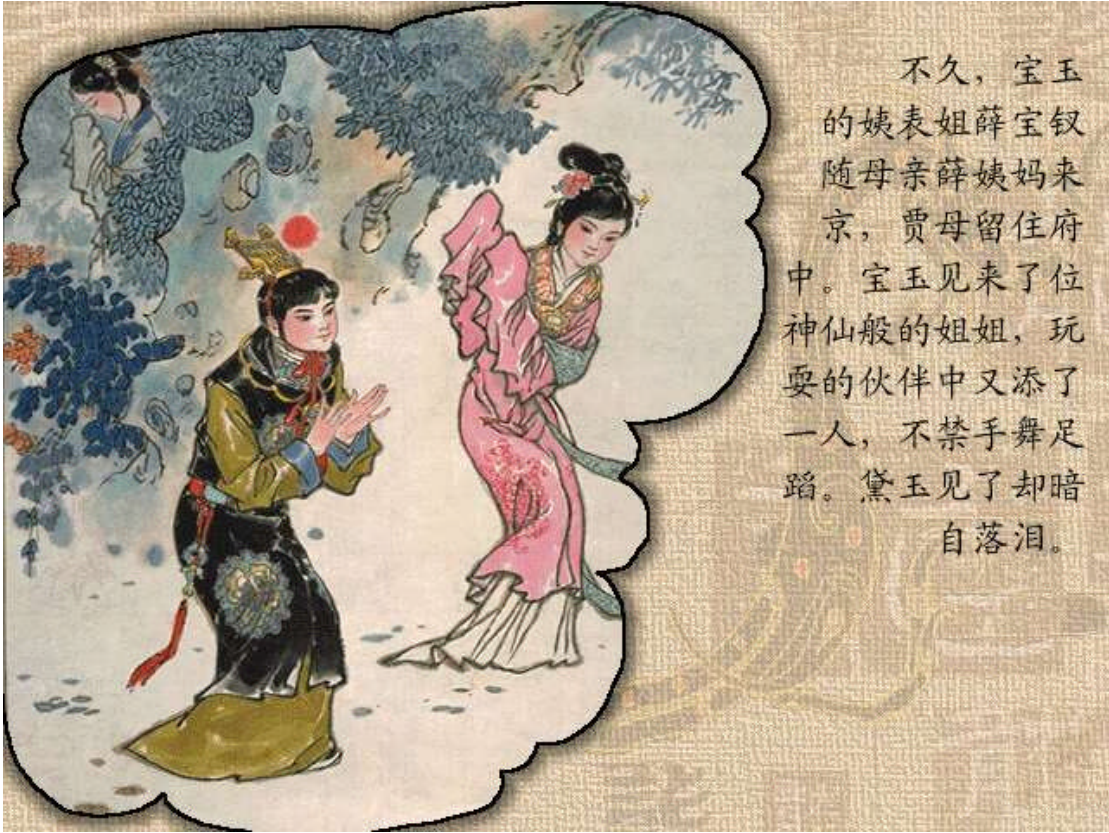 不久，宝玉
的姨表姐薛宝钗
随母亲薛姨妈来
京，贾母留住府
中。宝玉见来了位
神仙般的姐姐，玩
耍的伙伴中又添了
一人，不禁手舞足
蹈。黛玉见了却暗
自落泪。